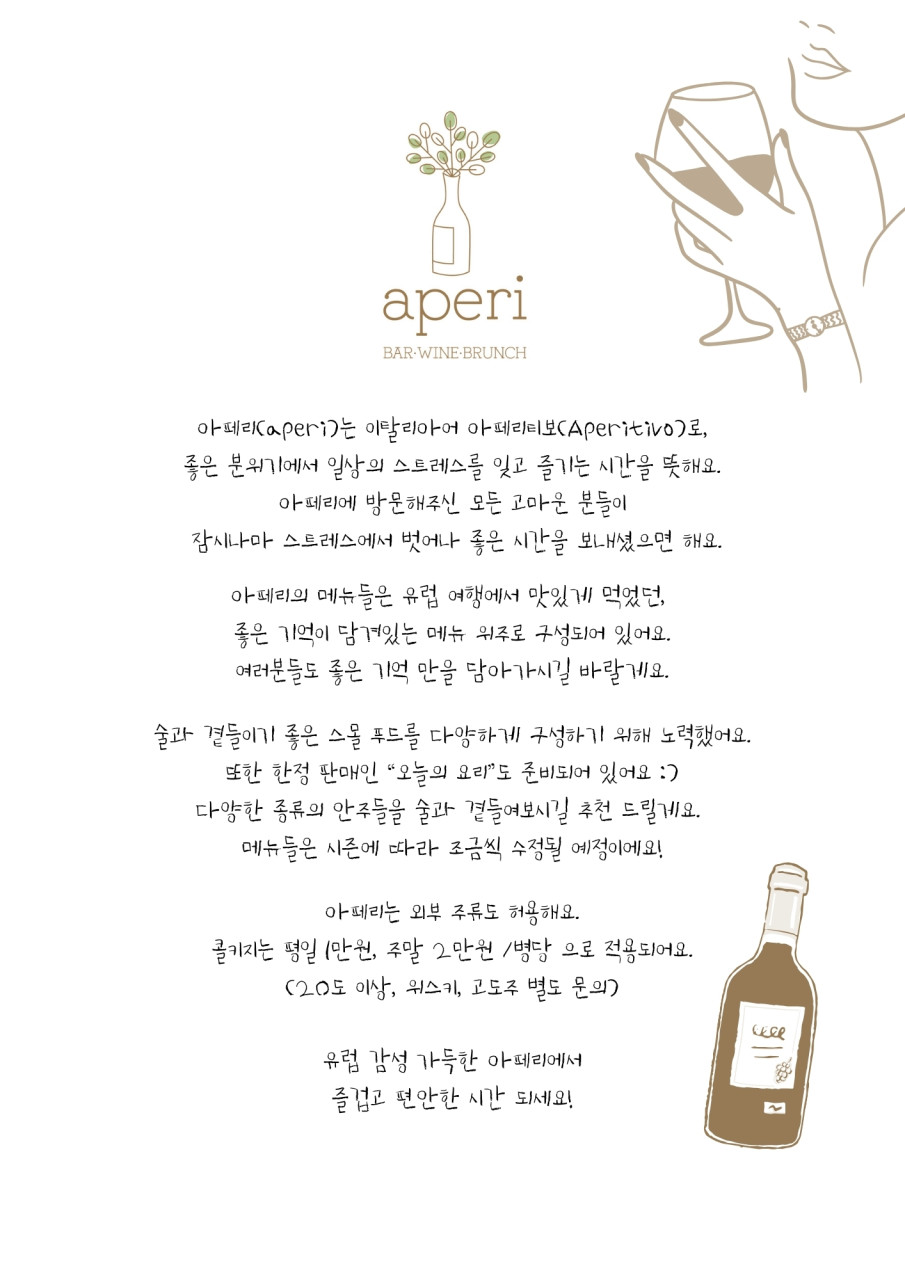 aperi
BAR·WINE·BRUNCH
아페리(aperi)는 이탈리아어 아페리티보(Aperitivo)로,
좋은 분위기에서 일상의 스트레스를 잊고 즐기는 시간을 뜻해요.
아페리에 방문해주신 모든 고마운 분들이
잠시나마 스트레스에서 벗어나 좋은 시간을 보내셨으면 해요.
아페리의 메뉴들은 유럽 여행에서 맛있게 먹었던,
좋은 기억이 담겨있는 메뉴 위주로 구성되어 있어요.
여러분들도 좋은 기억 만을 담아가시길 바랄게요.
술과 곁들이기 좋은 스몰 푸드를 다양하게 구성하기 위해 노력했어요.
또한 한정 판매인 “오늘의 요리”도 준비되어 있어요 :)
다양한 종류의 안주들을 술과 곁들여보시길 추천 드릴게요.
메뉴들은 시즌에 따라 조금씩 수정될 예정이에요!
아페리는 외부 주류도 허용해요.
콜키지는 평일 1만원, 주말 2만원 /병당 으로 적용되어요.
(20도 이상, 위스키, 고도주 별도 문의)
유럽 감성 가득한 아페리에서
즐겁고 편안한 시간 되세요!